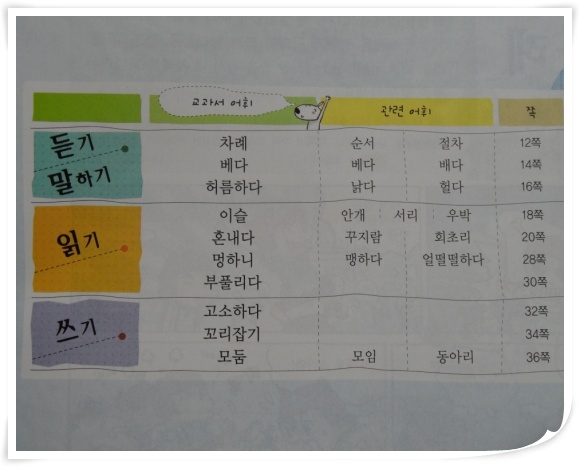 교과서 어휘 관련 어휘 쪽
듣기
말하기
차례 순서 절차 12쪽
베다 베다 배다 14쪽
허름하다 낡다 헐다 16쪽
읽기
이슬 안개 서리 우박 18쪽
혼내다 꾸지람 회초리 20쪽
멍하니 맹하다 얼떨떨하다 28쪽
부풀리다 30쪽
쓰기
고소하다 32쪽
꼬리잡기 34쪽
모둠 모임 동아리 36쪽